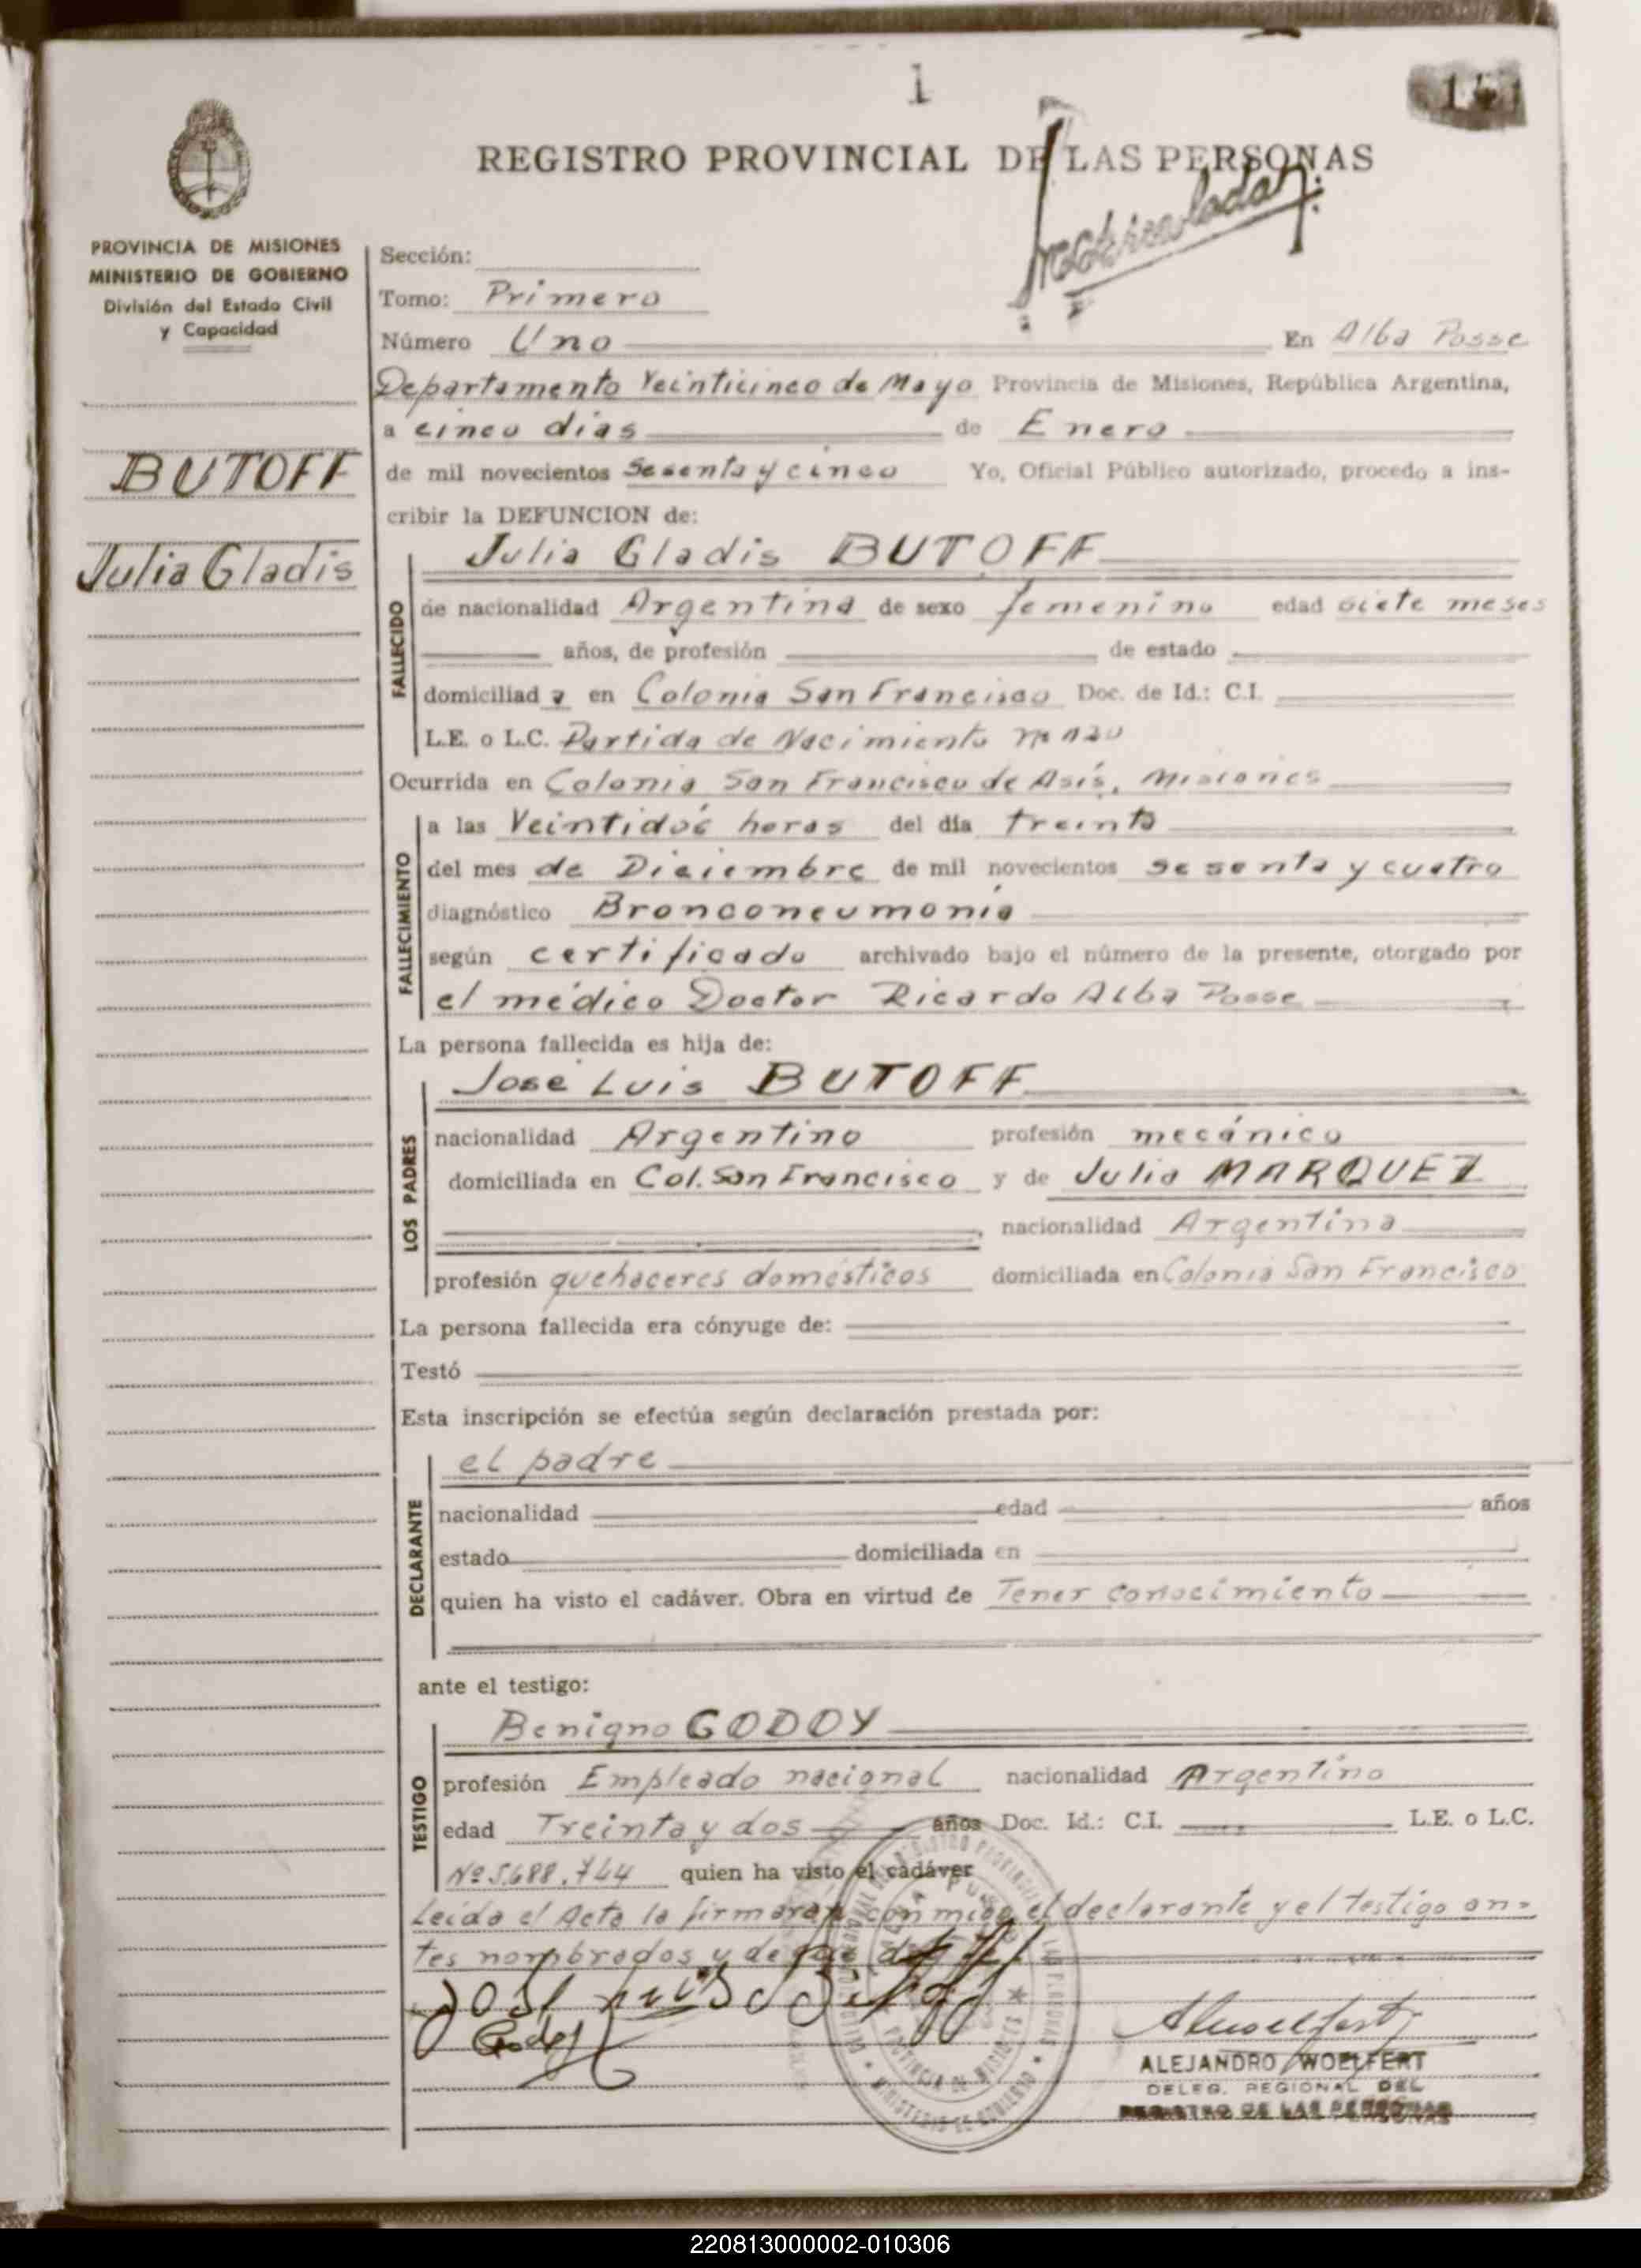 1
REGISTRO PROVINCIAL DE LAS PERSONAS
PROVINCIA DE MISIONES
MINISTERIO DE GOBIERNO
División del Estado Civil
y Capacidad
BUTOFF
Julia Gladis
Sección:
Tomo: Primero
Número Uno En Alba Posse
Departamento Veinticinco de Mayo Provincia de Misiones, República Argentina,
a cinco dias de Enero
de mil novecientos Sesenta y cinco Yo, Oficial Público autorizado, procedo a ins-
cribir la DEFUNCION de:
Julia Gladis BUTOFF
FALLECIDO
de nacionalidad Argentina de sexo femenino edad siete meses
años, de profesión de estado
domiciliad a en Colonia San Francisco Doc. de Id.: C.I.
L.E. o L.C. Partida de Nacimiento nº 120
Ocurrida en Colonia San Francisco de Asís, Misiones
FALLECIMIENTO
a las Veintidós horas del día treinta
del mes de Diciembre de mil novecientos sesenta y cuatro
diagnóstico Bronconeumonía
según certificado archivado bajo el número de la presente, otorgado por
el médico Doctor Ricardo Alba Posse
La persona fallecida es hija de:
LOS PADRES
José Luis BUTOFF
nacionalidad Argentino profesión mecánico
domiciliada en Col. San Francisco y de Julia MARQUEZ
nacionalidad Argentina
profesión quehaceres domésticos domiciliada en Colonia San Francisco
La persona fallecida era cónyuge de:
Testó
Esta inscripción se efectúa según declaración prestada por:
DECLARANTE
el padre
nacionalidad edad años
estado domiciliada en
quien ha visto el cadáver. Obra en virtud de Tener conocimiento
ante el testigo:
TESTIGO
Benigno GODOY
profesión Empleado nacional nacionalidad Argentino
edad Treinta y dos años Doc. Id.: C.I. L.E. o L.C.
Nº 5.688.744 quien ha visto el cadáver
Leída el Acta la firmaran conmigo el declarante y el testigo an-
tes nombrados y de que doy fé
José Luis Butoff
Godoy
ALEJANDRO WOELFERT
DELEG. REGIONAL DEL
REGISTRO DE LAS PERSONAS
220813000002-010306